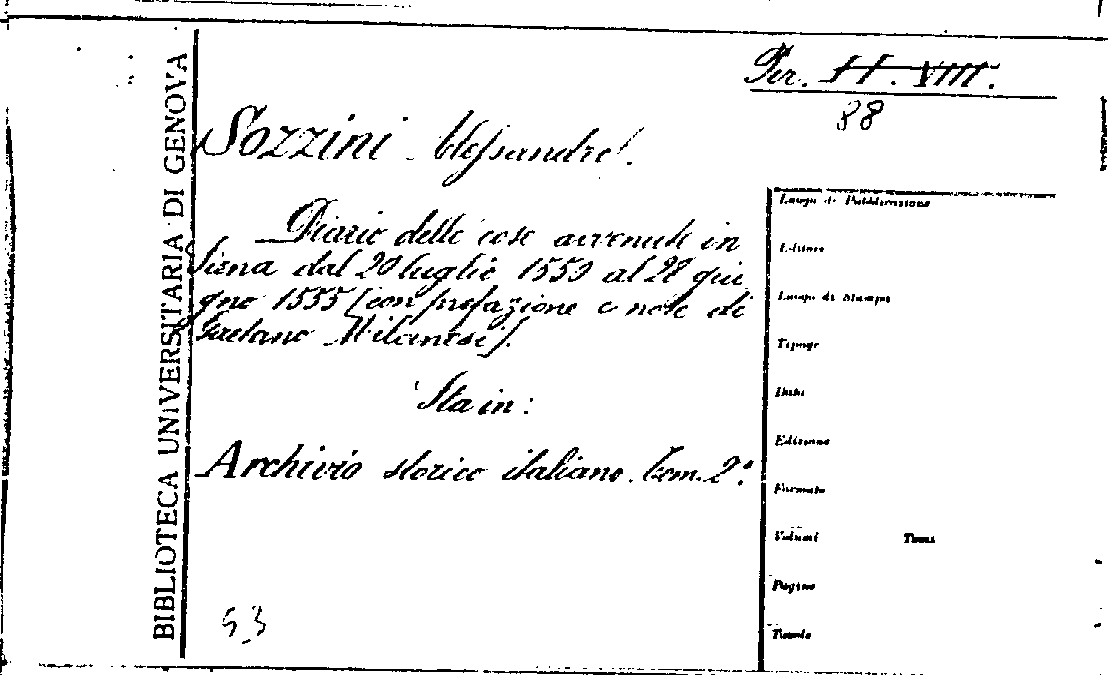 BIBLIOTECA UNIVERSITARIA DI GENOVA
Per. II. VIII.
88
Sozzini Alessandro.
Diario delle cose avvenute in
Siena dal 20 luglio 1550 al 28 giu
gno 1555 [con prefazione e note di
Gaetano Milanesi].
Sta in:
Archivio storico italiano. Tom. 2°.
53
Luogo di Pubblicazione
Editore
Luogo di Stampa
Tipogr
Data
Edizione
Formato
Volumi Tomi
Pagine
Tavole